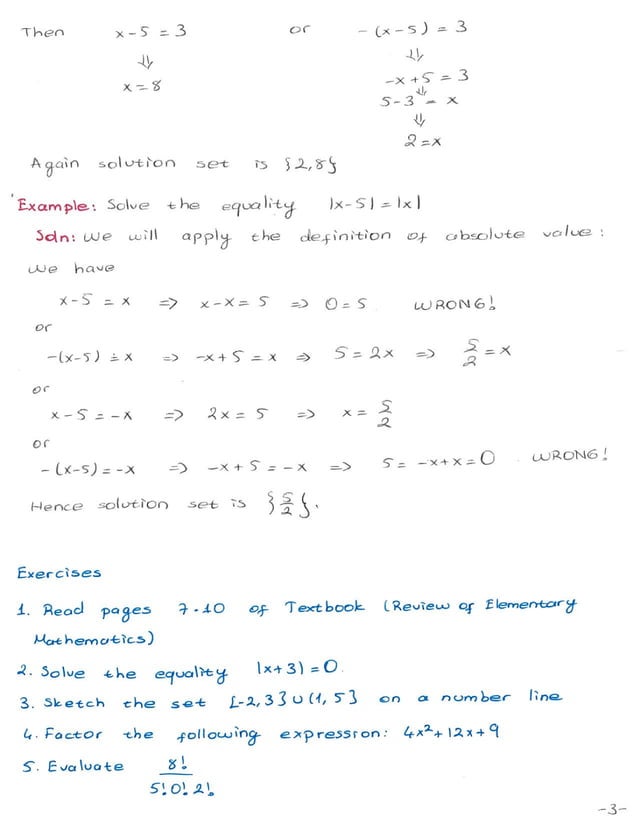 Then x-5 = 3 or -(x-5) = 3
⇓ ⇓
x=8 -x+5 = 3
⇓
5-3 = x
⇓
2=x
Again solution set is {2,8}
Example: Solve the equality |x-5|=|x|
Soln: We will apply the definition of absolute value:
We have
x-5 = x => x-x= 5 => 0=5 WRONG!
or
-(x-5) = x => -x+5 = x => 5=2x => 5/2 = x
or
x-5 = -x => 2x = 5 => x = 5/2
or
-(x-5)=-x => -x+5=-x => 5= -x+x=0. WRONG!
Hence solution set is {5/2}.
Exercises
1. Read pages 7-10 of Textbook (Review of Elementary
Mathematics)
2. Solve the equality |x+3|=0.
3. Sketch the set [-2,3]∪(1,5] on a number line
4. Factor the following expression: 4x²+12x+9
5. Evaluate 8!
5!0!2!
-3-